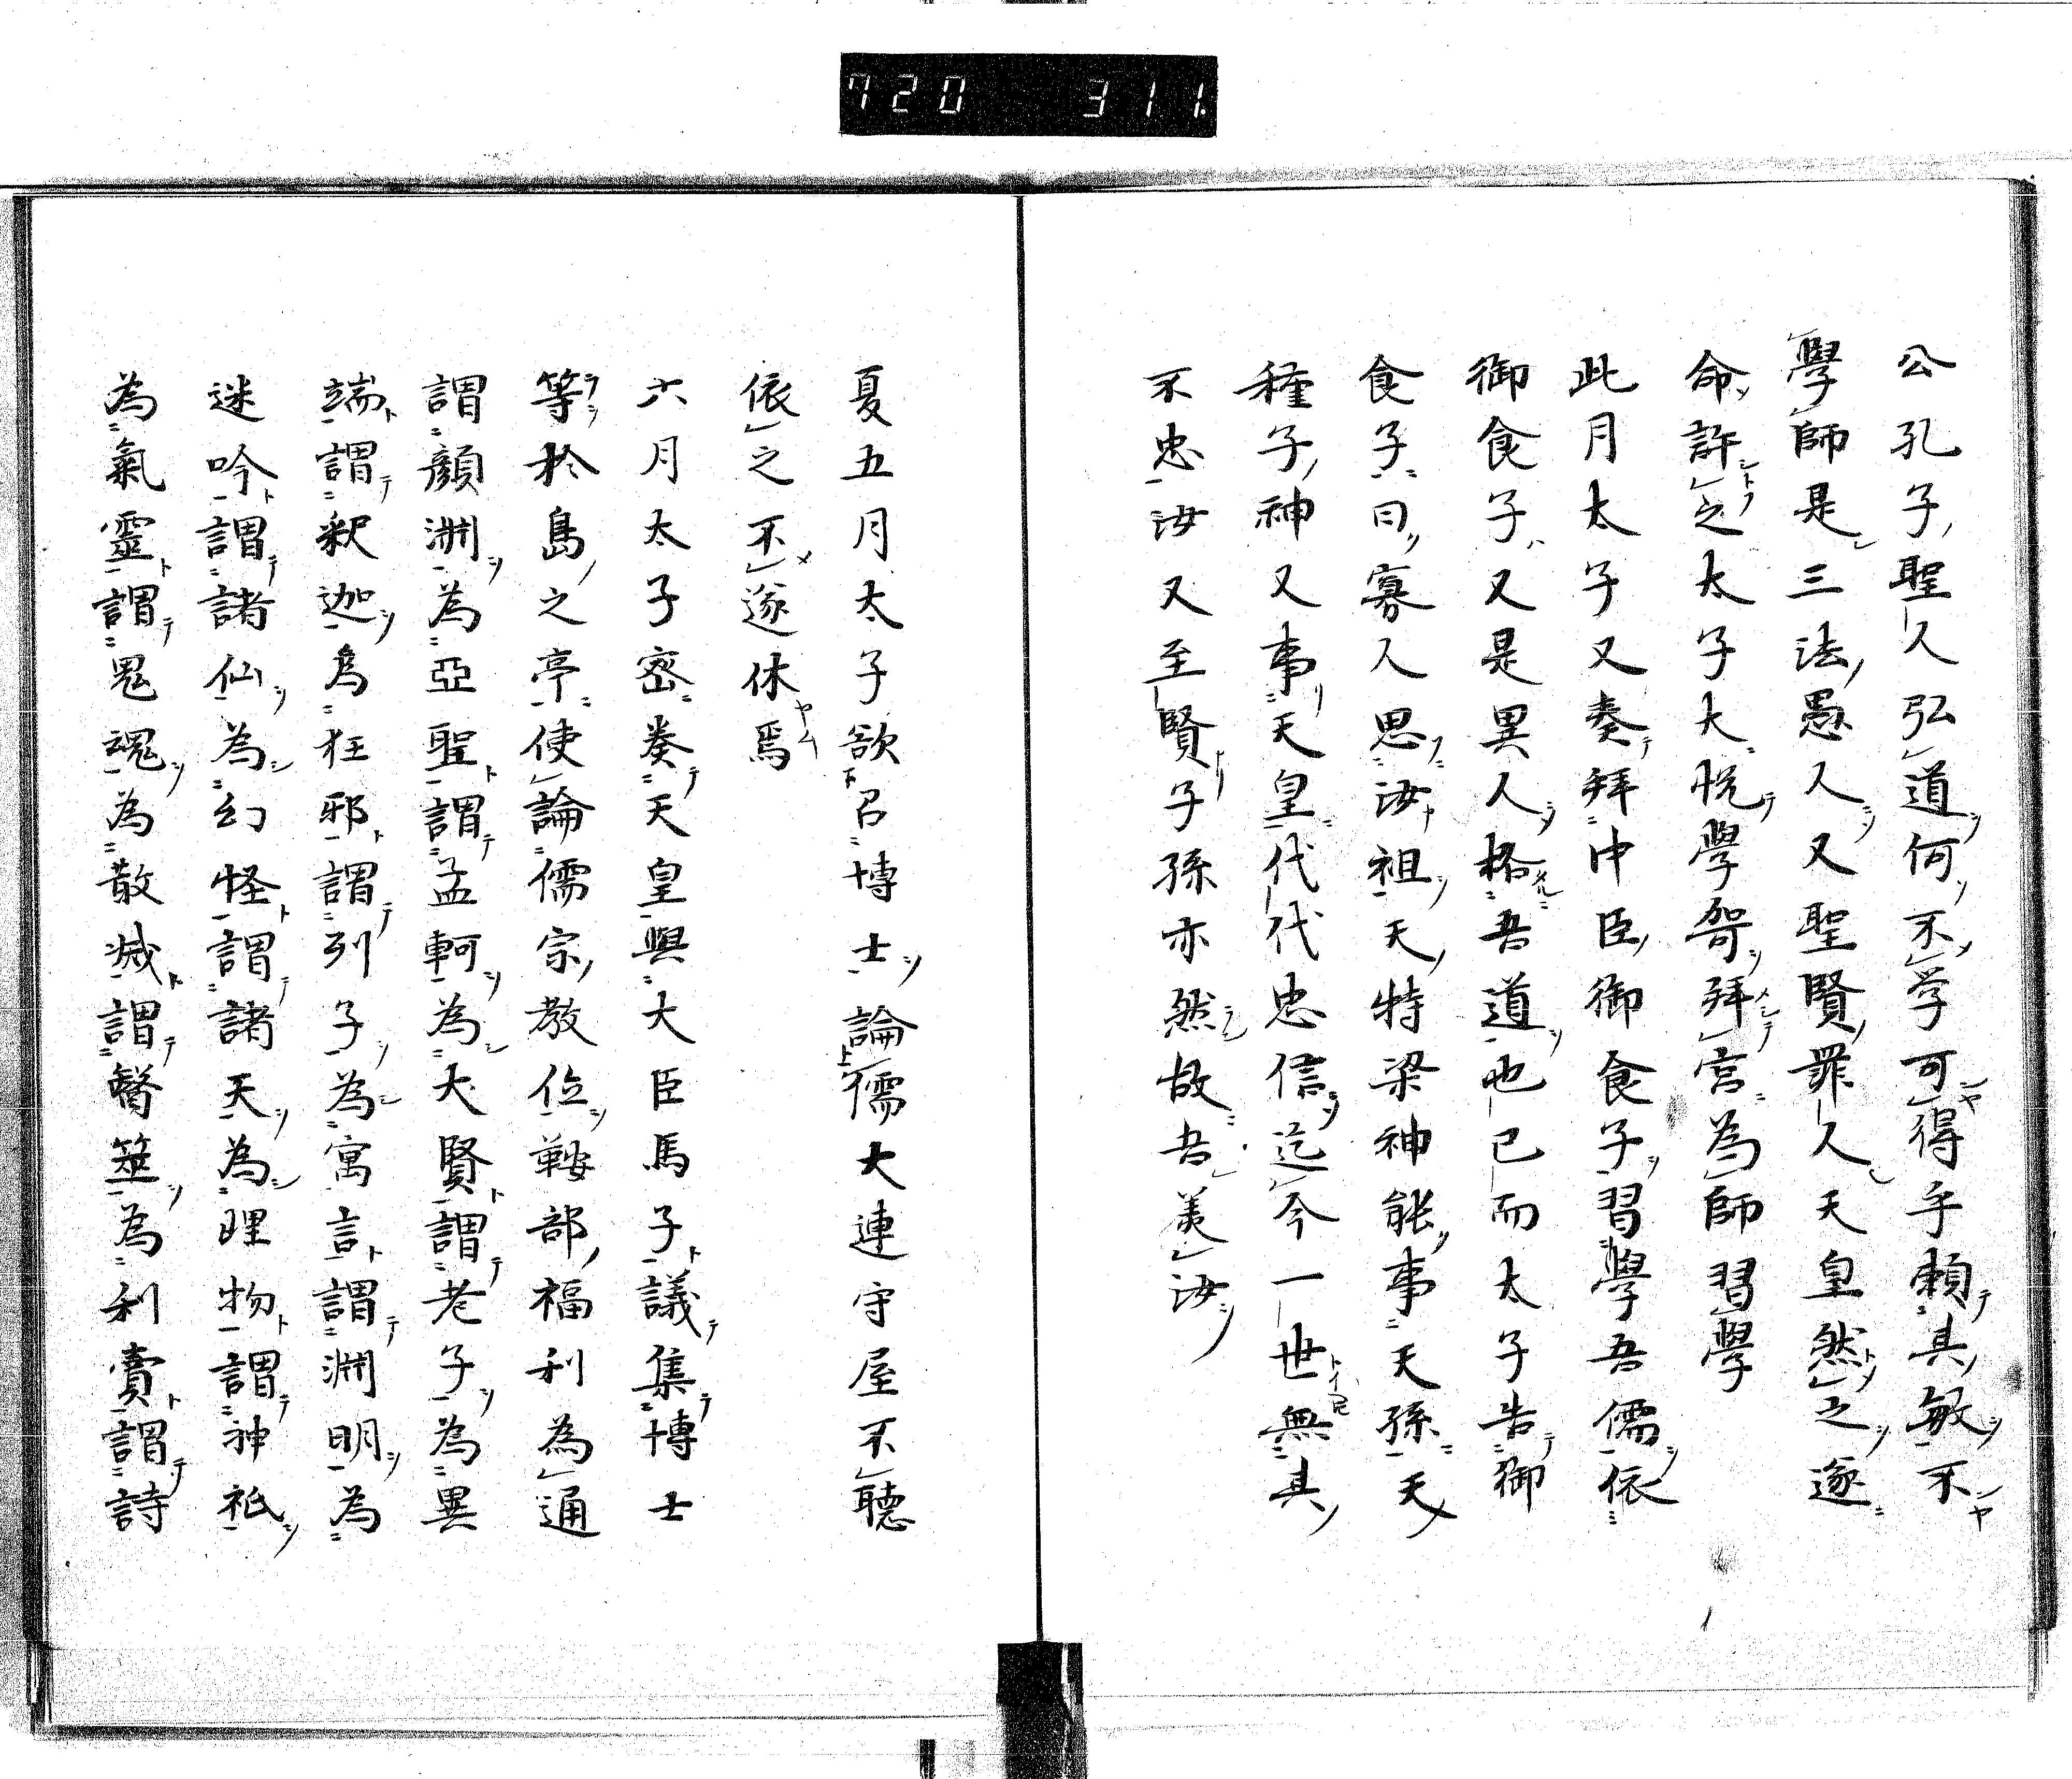 720 311.
公孔子聖人弘道何不学可得乎頼其敏不
學師是三法愚人又聖賢罪人天皇然之遂
命許之太子大悦學哿拜宮為師習學
此月太子又奏拜中臣御食子習學吾儒依
御食子又是異人格吾道也已而太子告御
食子曰寡人思汝祖天特梁神能事天孫天
種子神又事天皇代代忠信迄今一世無其
不忠汝又至賢子孫亦然故吾羨汝
夏五月太子欲召博士論儒大連守屋不聴
依之不遂休焉
六月太子密奏天皇與大臣馬子議集博士
等於島之亭使論儒宗教位鞍部福利為通
謂顔渊為亞聖謂孟軻為大賢謂老子為異
端謂釈迦為狂邪謂列子為寓言謂渊明為
迷吟謂諸仙為幻怪謂諸天為理物謂神祇
為氣靈謂鬼魂為散滅謂醫筮為利賣謂詩